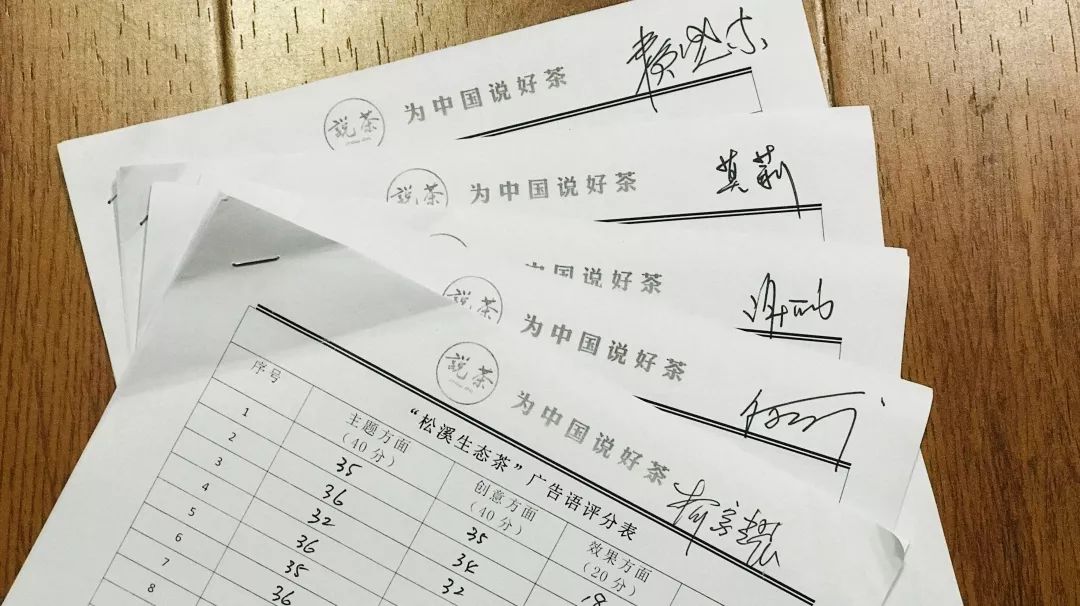 说茶
为中国说好茶
说茶
为中国说好茶
莫莉
中国说好茶
说茶
为中国说好茶
说茶
为中国说好茶
“松溪生态茶”广告语评分表
序号
主题方面
(40分)
创意方面
(40分)
效果方面
(20分)
1
35
35
2
36
34
3
32
32
4
36
5
35
6
36
7
8